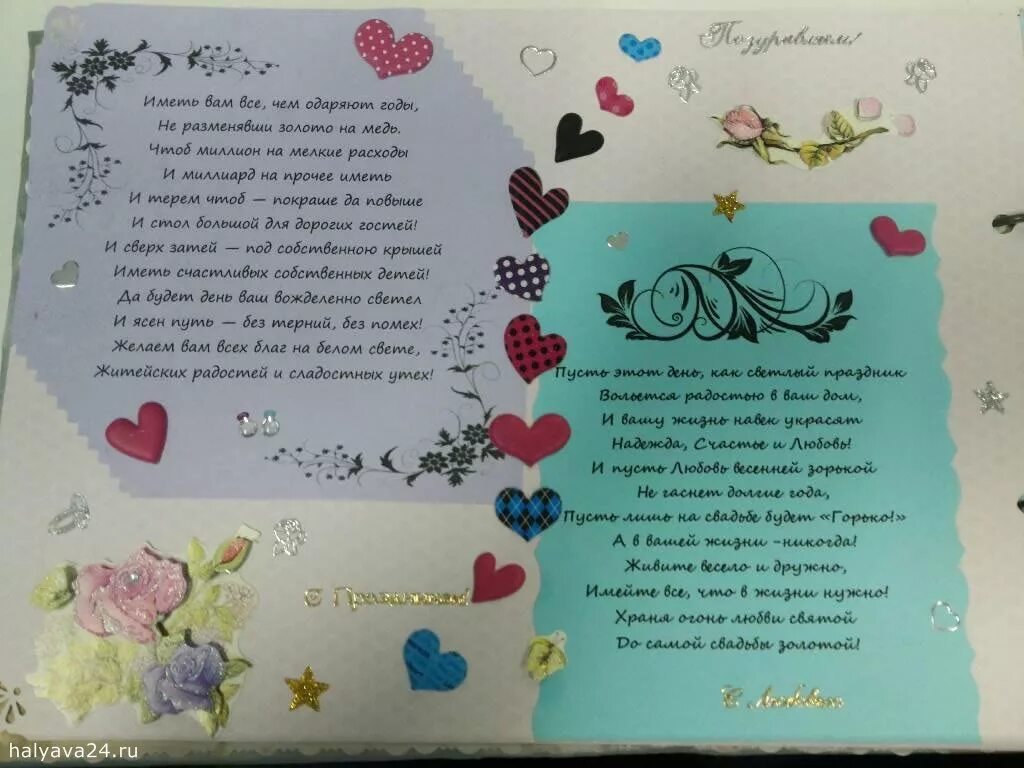 Иметь вам все, чем одаряют годы,
Не разменявши золото на медь.
Чтоб миллион на мелкие расходы
И миллиард на прочее иметь
И терем чтоб — покраше да повыше
И стол большой для дорогих гостей!
И сверх затей — под собственною крышей
Иметь счастливых собственных детей!
Да будет день ваш вожделенно светел
И ясен путь — без терний, без помех!
Желаем вам всех благ на белом свете,
Житейских радостей и сладостных утех!
С Праздником!
Поздравляем!
Пусть этот день, как светлый праздник
Вольется радостью в ваш дом,
И вашу жизнь навек украсят
Надежда, Счастье и Любовь!
И пусть Любовь весенней зорькой
Не гаснет долгие года,
Пусть лишь на свадьбе будет «Горько!»
А в вашей жизни –никогда!
Живите весело и дружно,
Имейте все, что в жизни нужно!
Храня огонь любви святой
До самой свадьбы золотой!
С Любовью
halyava24.ru